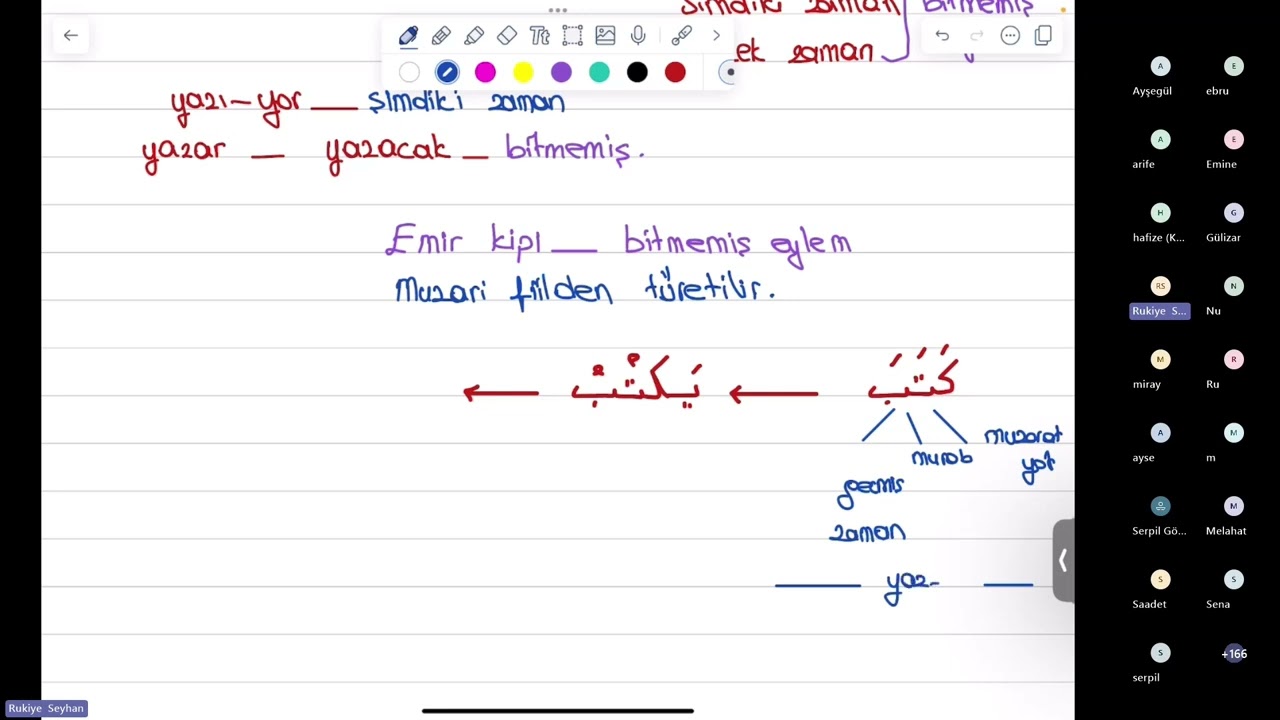 şimdiki zaman bitmemiş
ek zaman
yazı-yor — şimdiki zaman
yazar — yazacak — bitmemiş.
Emir kipi — bitmemiş eylem
Muzari fiilden türetilir.
كَتَبَ ← يَكْتُبُ ←
muzarat
yok
geçmiş
zaman
— yaz- —
Tt
A
Ayşegül
E
ebru
A
arife
E
Emine
H
hafize (K...
G
Gülizar
RS
Rukiye S...
N
Nu
M
miray
R
Ru
A
ayse
M
m
Serpil Gö...
M
Melahat
S
Saadet
S
Sena
S
serpil
+166
Rukiye Seyhan